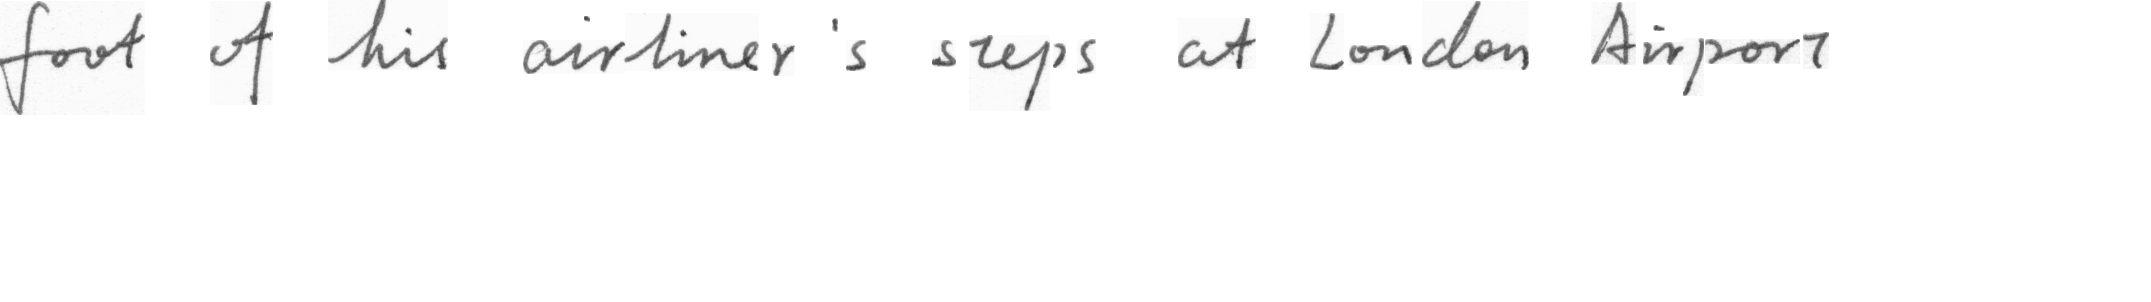 foot of his airliner's steps at London Airport